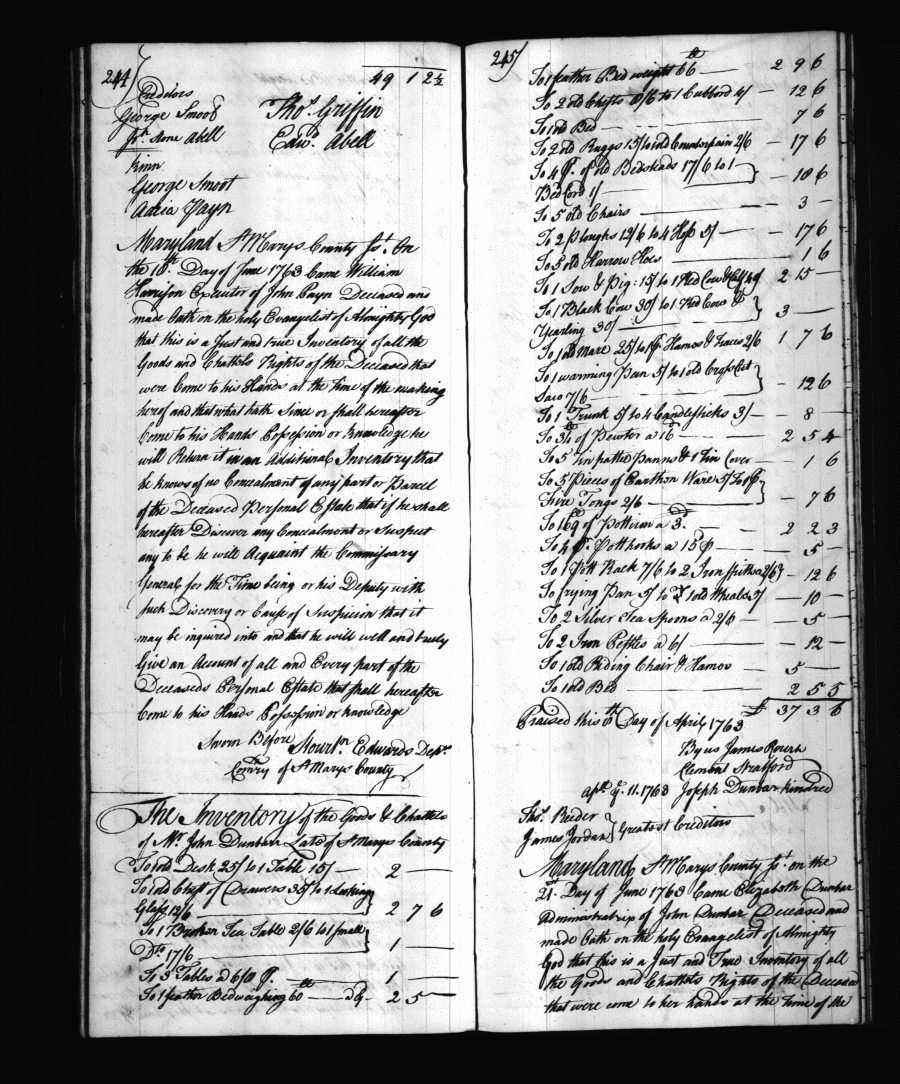 244
49 1 2½
Creditors
George Smoot Thos. Griffin
Jno. Stone Abell Edwd. Abell
Kinn
George Smoot
Adria Payn
Maryland St Marys County Js. On
the 10th. Day of June 1763 Came William
Harrison Executor of John Payn Deceased and
made Oath on the holy Evangelist of Almighty God
that this is a Just and true Inventory of all the
Goods and Chattels Rights of the Deceased that
were Come to his Hands at the time of the making
hereof and that what hath Since or shall hereafter
Come to his Hands Possession or knowledge he
will Return it in an Additional Inventory that
he knows of no Concealment of any part or Parcell
of the Deceased Personal Estate that if he shall
hereafter Discover any Concealment or Suspect
any to be he will Acquaint the Commissary
General for the Time being or his Deputy with
Such Discovery or Cause of Suspicion that it
may be inquired into and that he will well and truly
Give an Account of all and Every part of the
Deceaseds Personal Estate that shall hereafter
Come to his Hands Possession or knowledge
Sworn Before Stourtn Edwards Depy.
Comry of St Marys County
The Inventory of the Goods & Chattels
of Mr. John Dunbarr Late of St Marys County
To 1 old Desk 25/ to 1 Table 15/ — 2 —
To 1 old Chest of Drawers 35/ to 1 Looking
Glass 12/6 — 2 7 6
To 1 Broken Tea Table 2/6 to 1 small
Do. 17/6 — 1 —
To 3 Tables a 6/8 p. — 1 —
To 1 feather Bed weighing 60 lb — a 9 - 2 5 —
245
To 1 feather Bed weight 66 lb — 2 9 6
To 2 old Chests 8/6 to 1 Cubbord 4/ — 12 6
To 1 old Bed — 7 6
To 2 old Ruggs 15/ to 1 old Counterpain 2/6 — 17 6
To 4 p. of old Bedsteads 17/6 to 1
Bed Cord 1/ — 18 6
To 5 old Chairs — 3 —
To 2 Ploughs 12/6 to 4 Hoes 5/ — 17 6
To 5 old Harrow Hoes — 1 6
To 1 Sow & Pig 15/ to 1 Red Cow & Calf 40/ 2 15 —
To 1 Black Cow 30/ to 1 Red Cow &
Yearling 30/ — 3 —
To 1 old Mare 25/ to 1 p. Hamos & Traces 2/6 1 7 6
To 1 warming Pan 5/ to 1 old Cross Cut
Saw 7/6 — 12 6
To 1 Trunk 5/ to 4 Candlesticks 3/ — 8 —
To 34 lb of Pewter a 16d — 2 5 4
To 5 Tin patted Panns & 1 Tin Cover — 1 6
To 5 Pieces of Earthen Ware 5/ to 1 p.
Fire Tongs 2/6 — 7 6
To 169 lb of Pottiron a 3d. — 2 2 3
To 4 pr. Pott hooks a 15d p — 5 —
To 1 Pott Rack 7/6 to 2 Iron spitts a 2/6 — 12 6
To frying Pan 5/ to 2 old Wheals 5/ — 10 —
To 2 Silver Tea Spoons a 2/6 — 5 —
To 2 Iron Pestles a 6/ — 12 —
To 1 old Riding Chair & Hamos — 5 —
To 1 old Bed — 2 5 5
£ 37 3 6
Praised this 8th Day of April 1763
By us James Roursh
Clement Stratford
aple. ye. 11. 1763 Joseph Dunbar kindred
Thos. Reeder
James Jordan } Greatest Creditors
Maryland St Marys County Js. on the
21. Day of June 1763 Came Elizabeth Dunbar
administratrix of John Dunbar Deceased and
made Oath on the holy Evangelist of Almighty
God that this is a Just and True Inventory of all
the Goods and Chattels Rights of the Deceased
that were come to her hands at the time of the